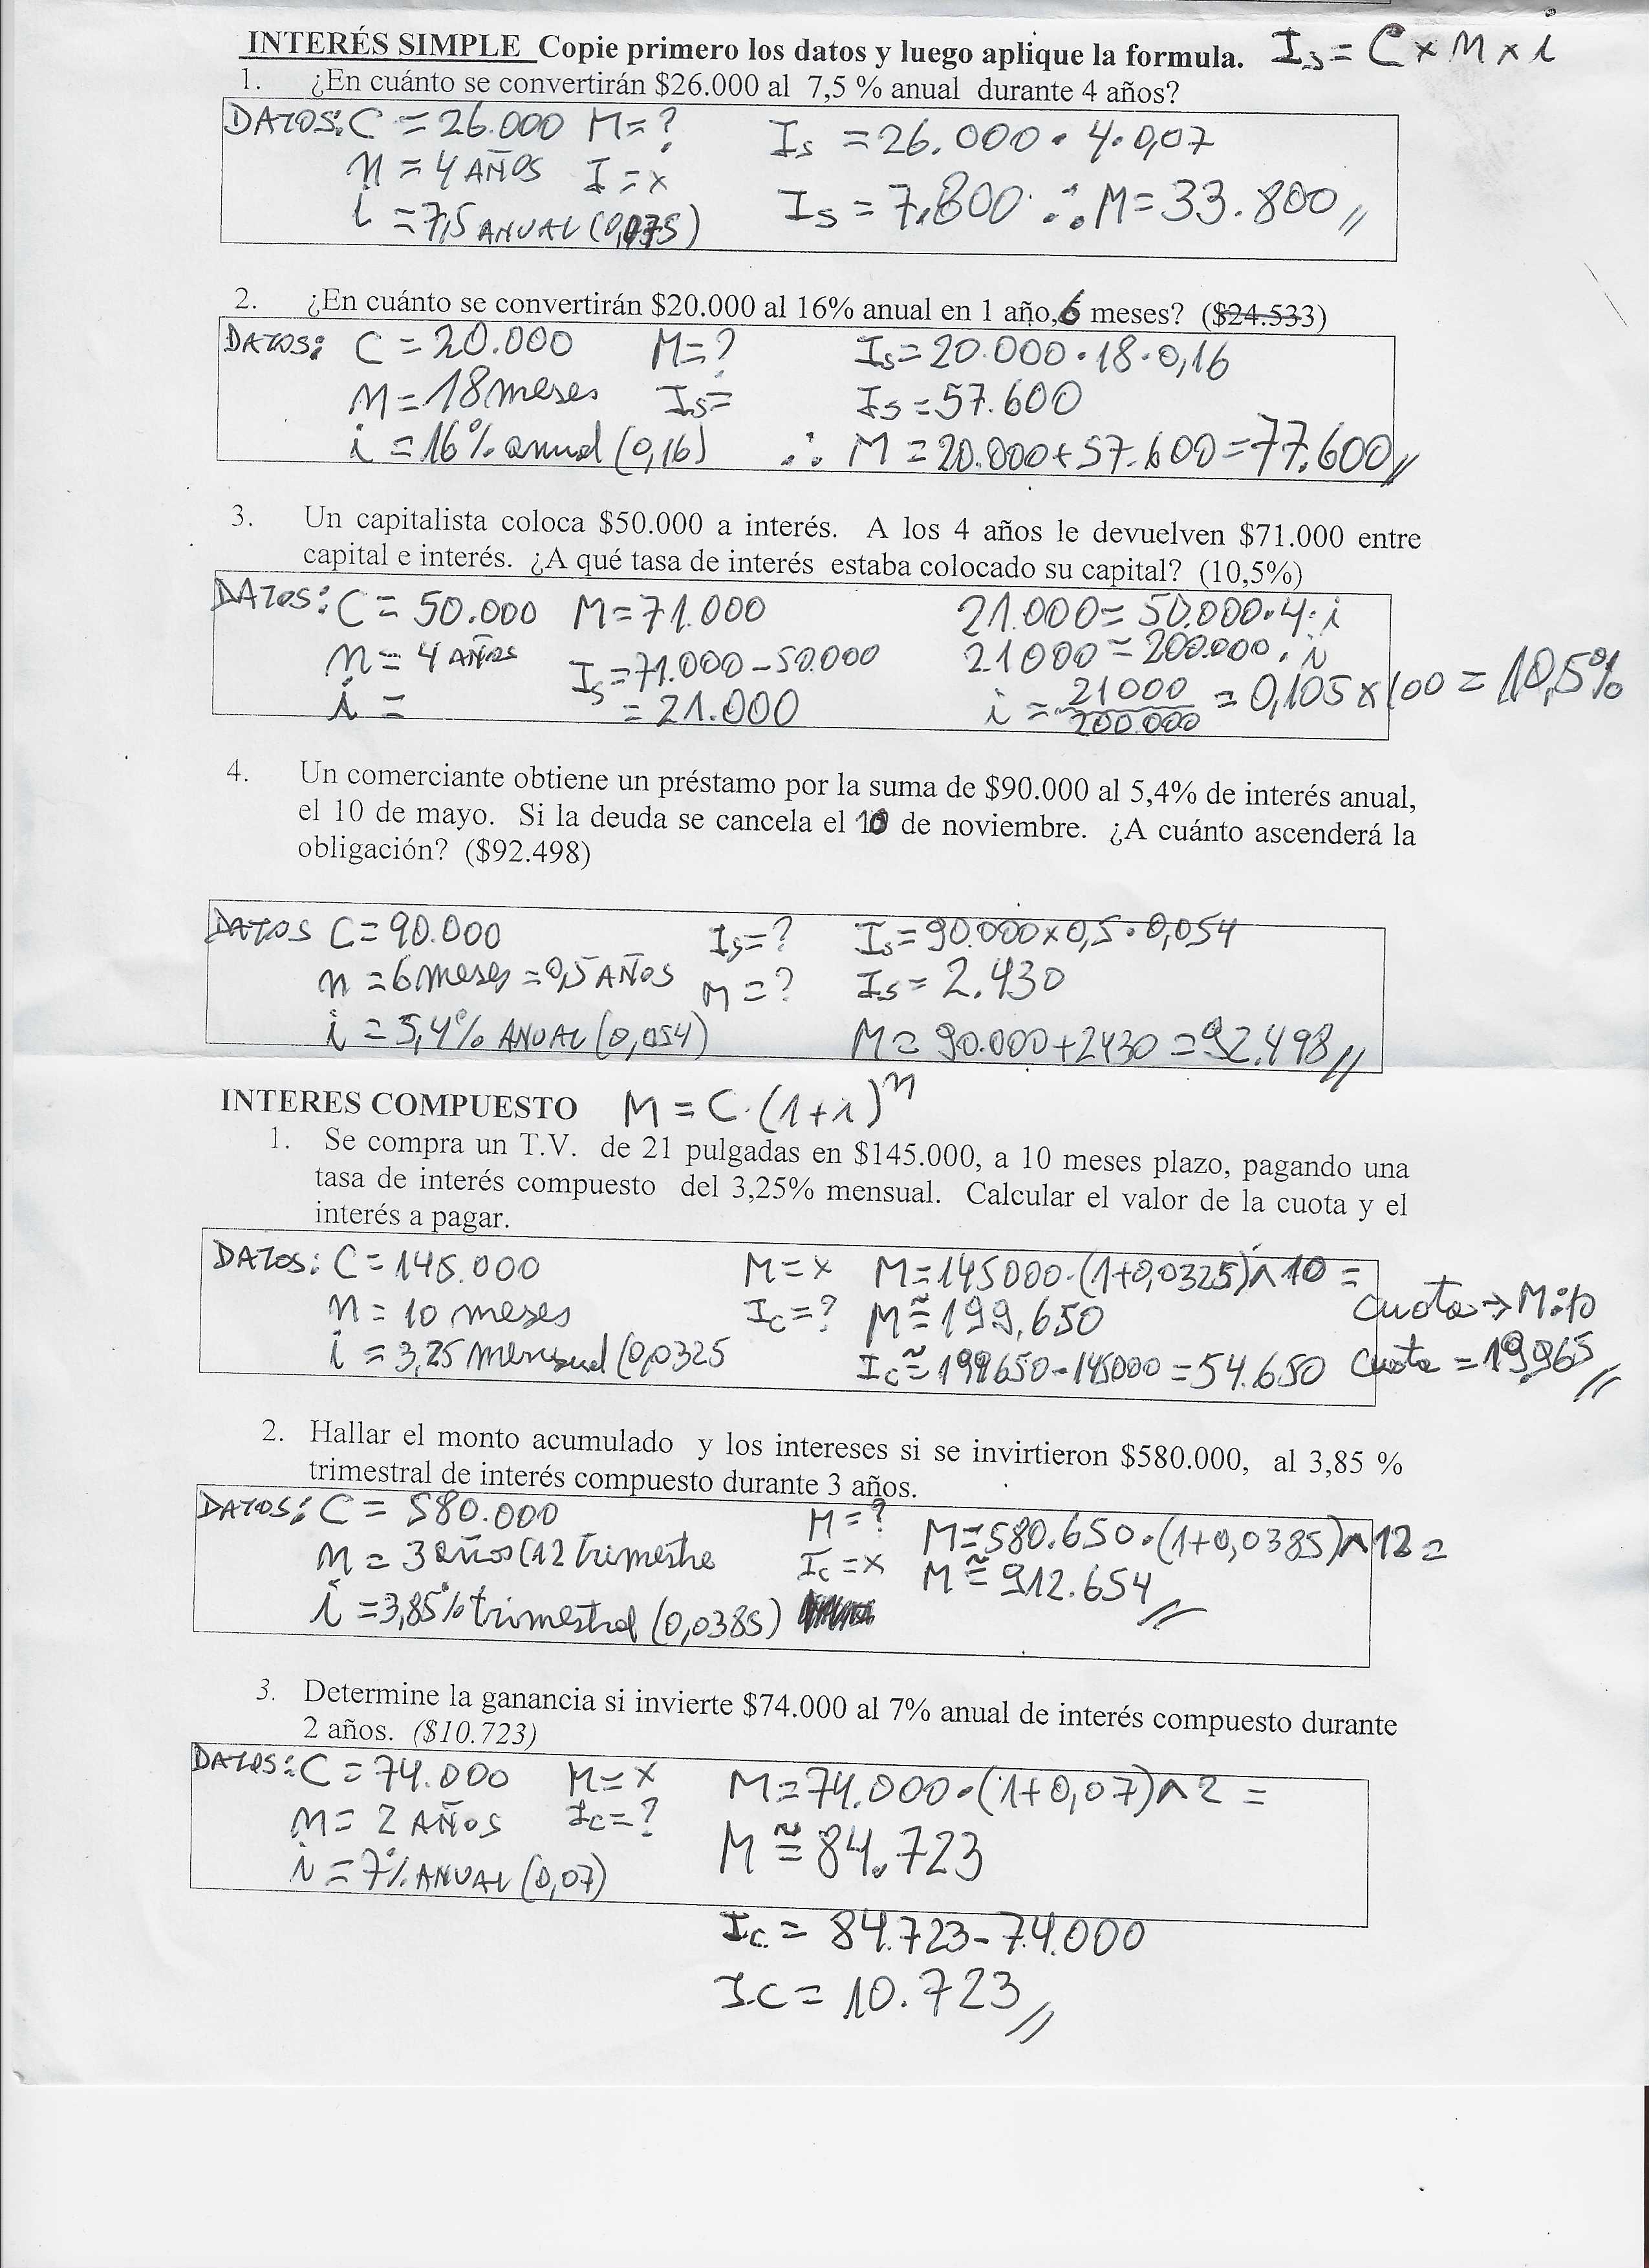 INTERÉS SIMPLE Copie primero los datos y luego aplique la formula. Is = C × n × i
1. ¿En cuánto se convertirán $26.000 al 7,5 % anual durante 4 años?
DATOS: C = 26.000 M = ? Is = 26.000 • 4 • 0,07
n = 4 AÑOS I = x
i = 7,5 ANUAL (0,075) Is = 7.800 ∴ M = 33.800 //
2. ¿En cuánto se convertirán $20.000 al 16% anual en 1 año, 6 meses? ($24.533)
DATOS: C = 20.000 M = ? Is = 20.000 • 18 • 0,16
n = 18 meses Is = Is = 57.600
i = 16% anual (0,16) ∴ M = 20.000 + 57.600 = 77.600 //
3. Un capitalista coloca $50.000 a interés. A los 4 años le devuelven $71.000 entre
capital e interés. ¿A qué tasa de interés estaba colocado su capital? (10,5%)
DATOS: C = 50.000 M = 71.000 21.000 = 50.000 • 4 • i
n = 4 AÑOS Is = 71.000 - 50.000 21000 = 200.000 • i
i = = 21.000 i = 21000/200.000 = 0,105 × 100 = 10,5%
4. Un comerciante obtiene un préstamo por la suma de $90.000 al 5,4% de interés anual,
el 10 de mayo. Si la deuda se cancela el 10 de noviembre. ¿A cuánto ascenderá la
obligación? ($92.498)
DATOS C = 90.000 Is = ? Is = 90.000 × 0,5 • 0,054
n = 6 meses = 0,5 AÑOS M = ? Is = 2.430
i = 5,4% ANUAL (0,054) M = 90.000 + 2430 = 92.498 //
INTERES COMPUESTO M = C • (1 + i)^n
1. Se compra un T.V. de 21 pulgadas en $145.000, a 10 meses plazo, pagando una
tasa de interés compuesto del 3,25% mensual. Calcular el valor de la cuota y el
interés a pagar.
DATOS: C = 145.000 M = x M = 145000 • (1+0,0325)^10 =
n = 10 meses Ic = ? M ≅ 199.650 Cuota → M:10
i = 3,25 mensual (0,0325 Ic ≅ 199650 - 145000 = 54.650 Cuota = 19.965 //
2. Hallar el monto acumulado y los intereses si se invirtieron $580.000, al 3,85 %
trimestral de interés compuesto durante 3 años.
DATOS: C = 580.000 M = ? M = 580.650 • (1+0,0385)^12 =
n = 3 años (12 trimestre Ic = x M ≅ 912.654 //
i = 3,85% trimestral (0,0385)
3. Determine la ganancia si invierte $74.000 al 7% anual de interés compuesto durante
2 años. ($10.723)
DATOS: C = 74.000 M = x M = 74.000 • (1+0,07)^2 =
n = 2 AÑOS Ic = ?
i = 7% ANUAL (0,07) M ≅ 84.723
Ic = 84.723 - 74.000
Ic = 10.723 //